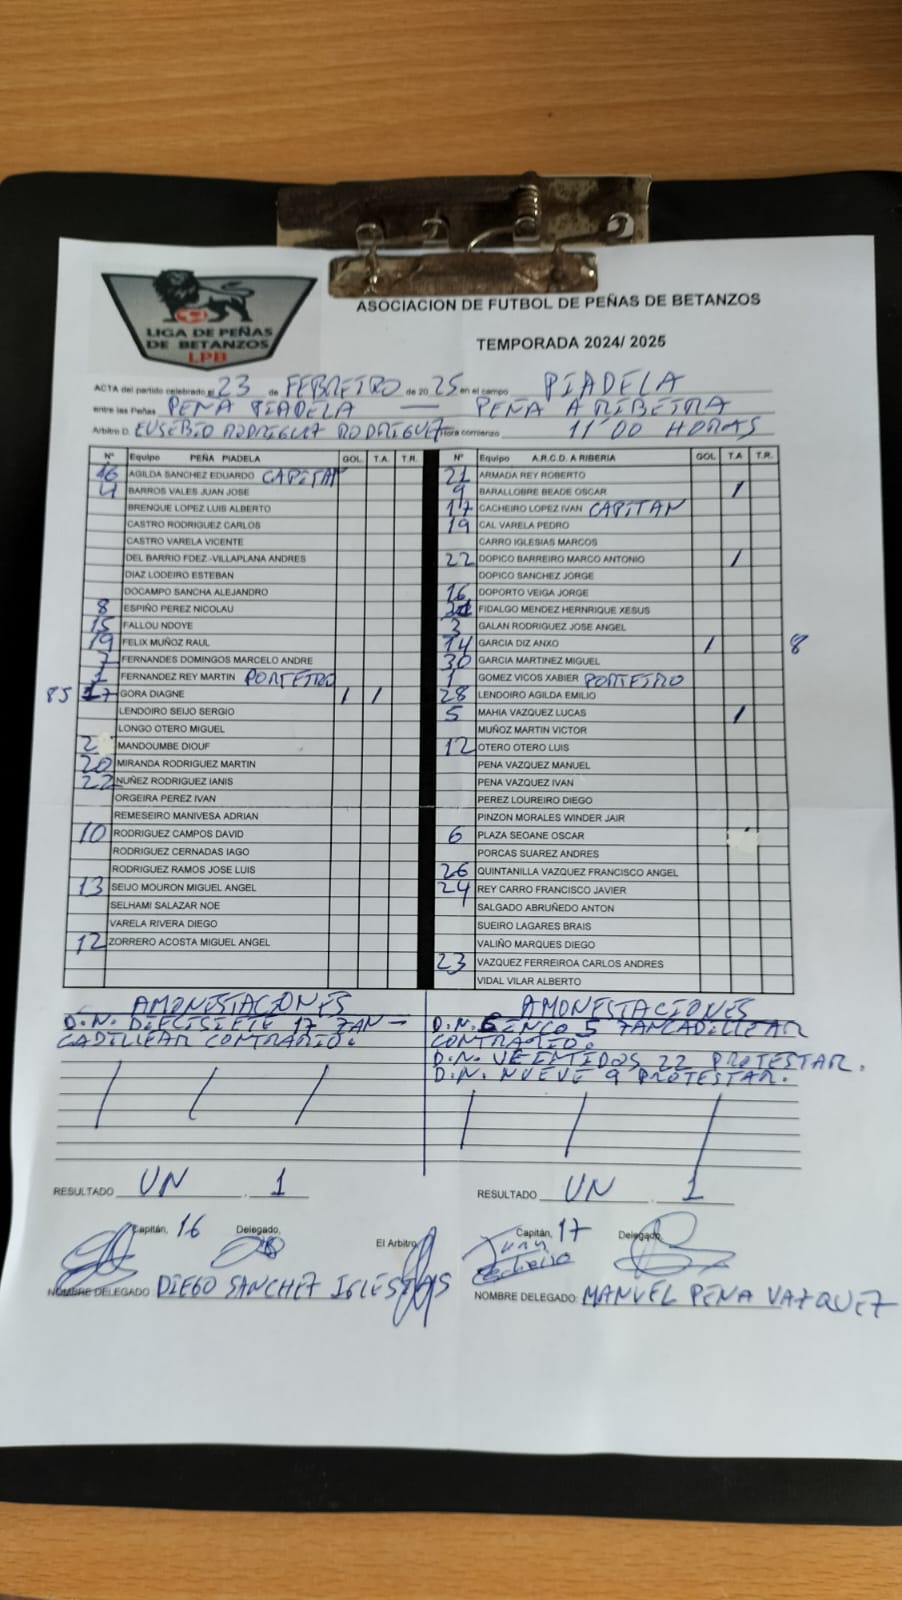 LIGA DE PEÑAS
DE BETANZOS
LPB
ASOCIACION DE FUTBOL DE PEÑAS DE BETANZOS
TEMPORADA 2024/ 2025
ACTA del partido celebrado el 23 de FEBREIRO de 2025 en el campo PIADELA
entre las Peñas PENA PIADELA — PENA A RIBEIRA
Arbitro D. EUSEBIO RODRIGUEZ RODRIGUEZ Hora comienzo 11'00 HORAS
Nº Equipo PEÑA PIADELA GOL T.A. T.R.
16 AGILDA SANCHEZ EDUARDO CAPITAN
4 BARROS VALES JUAN JOSE
BRENQUE LOPEZ LUIS ALBERTO
CASTRO RODRIGUEZ CARLOS
CASTRO VARELA VICENTE
DEL BARRIO FDEZ.-VILLAPLANA ANDRES
DIAZ LODEIRO ESTEBAN
DOCAMPO SANCHA ALEJANDRO
8 ESPIÑO PEREZ NICOLAU
15 FALLOU NDOYE
19 FELIX MUÑOZ RAUL
7 FERNANDES DOMINGOS MARCELO ANDRE
1 FERNANDEZ REY MARTIN PORTEIRO
85 17 GORA DIAGNE / /
LENDOIRO SEIJO SERGIO
LONGO OTERO MIGUEL
2 MANDOUMBE DIOUF
20 MIRANDA RODRIGUEZ MARTIN
22 NUÑEZ RODRIGUEZ IANIS
ORGEIRA PEREZ IVAN
REMESEIRO MANIVESA ADRIAN
10 RODRIGUEZ CAMPOS DAVID
RODRIGUEZ CERNADAS IAGO
RODRIGUEZ RAMOS JOSE LUIS
13 SEIJO MOURON MIGUEL ANGEL
SELHAMI SALAZAR NOE
VARELA RIVERA DIEGO
12 ZORRERO ACOSTA MIGUEL ANGEL
Nº Equipo A.R.C.D. A RIBERIA GOL T.A T.R.
21 ARMADA REY ROBERTO
9 BARALLOBRE BEADE OSCAR /
17 CACHEIRO LOPEZ IVAN CAPITAN
19 CAL VARELA PEDRO
CARRO IGLESIAS MARCOS
22 DOPICO BARREIRO MARCO ANTONIO /
DOPICO SANCHEZ JORGE
16 DOPORTO VEIGA JORGE
FIDALGO MENDEZ HERNRIQUE XESUS
3 GALAN RODRIGUEZ JOSE ANGEL
14 GARCIA DIZ ANXO / 8
30 GARCIA MARTINEZ MIGUEL
1 GOMEZ VICOS XABIER PORTEIRO
28 LENDOIRO AGILDA EMILIO
5 MAHIA VAZQUEZ LUCAS /
MUÑOZ MARTIN VICTOR
12 OTERO OTERO LUIS
PENA VAZQUEZ MANUEL
PENA VAZQUEZ IVAN
PEREZ LOUREIRO DIEGO
PINZON MORALES WINDER JAIR
6 PLAZA SEOANE OSCAR
PORCAS SUAREZ ANDRES
26 QUINTANILLA VAZQUEZ FRANCISCO ANGEL
24 REY CARRO FRANCISCO JAVIER
SALGADO ABRUÑEDO ANTON
SUEIRO LAGARES BRAIS
VALIÑO MARQUES DIEGO
23 VAZQUEZ FERREIROA CARLOS ANDRES
VIDAL VILAR ALBERTO
AMONESTACIONES
D.N. DIECISIETE 17 ZAN-
CADILLEAR CONTRARIO.
AMONESTACIONES
D.N. CINCO 5 ZANCADILLEAR
CONTRARIO.
D.N. VEINTIDOS 22 PROTESTAR.
D.N. NUEVE 9 PROTESTAR.
RESULTADO UN . 1
RESULTADO UN . 1
Capitán, 16 Delegado, El Arbitro,
Capitán, 17 Delegado,
NOMBRE DELEGADO DIEGO SANCHEZ IGLESIAS
NOMBRE DELEGADO: MANUEL PENA VAZQUEZ